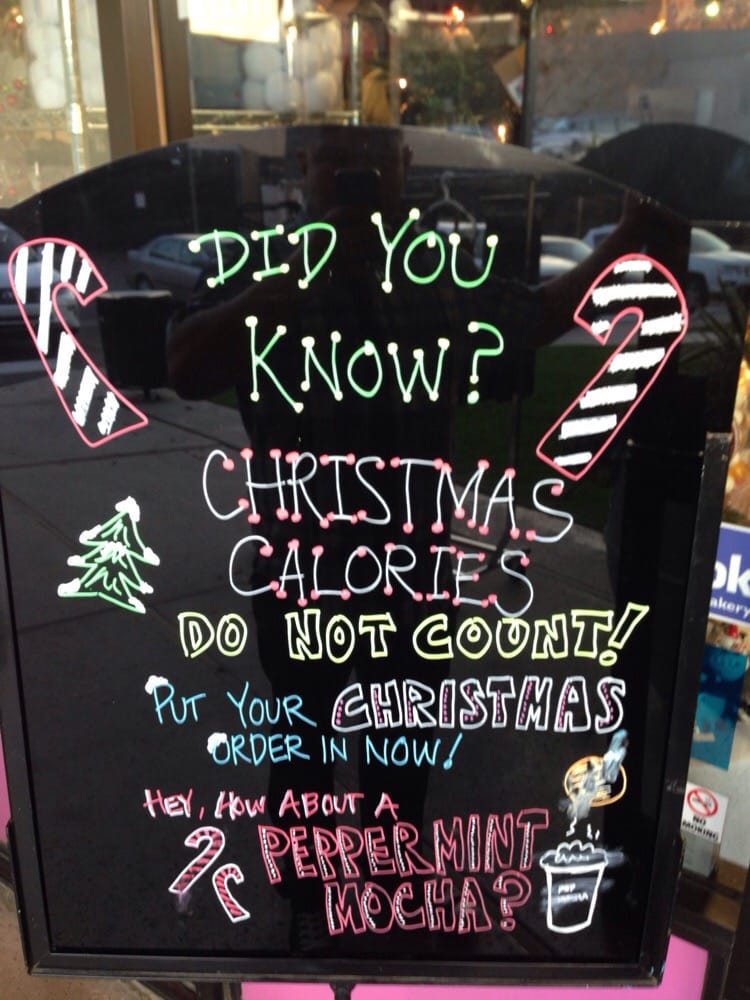 DID YOU
KNOW?
CHRISTMAS
CALORIES
DO NOT COUNT!
PUT YOUR CHRISTMAS
ORDER IN NOW!
HEY, HOW ABOUT A
PEPPERMINT
MOCHA?
ok
akery
NO
SMOKING